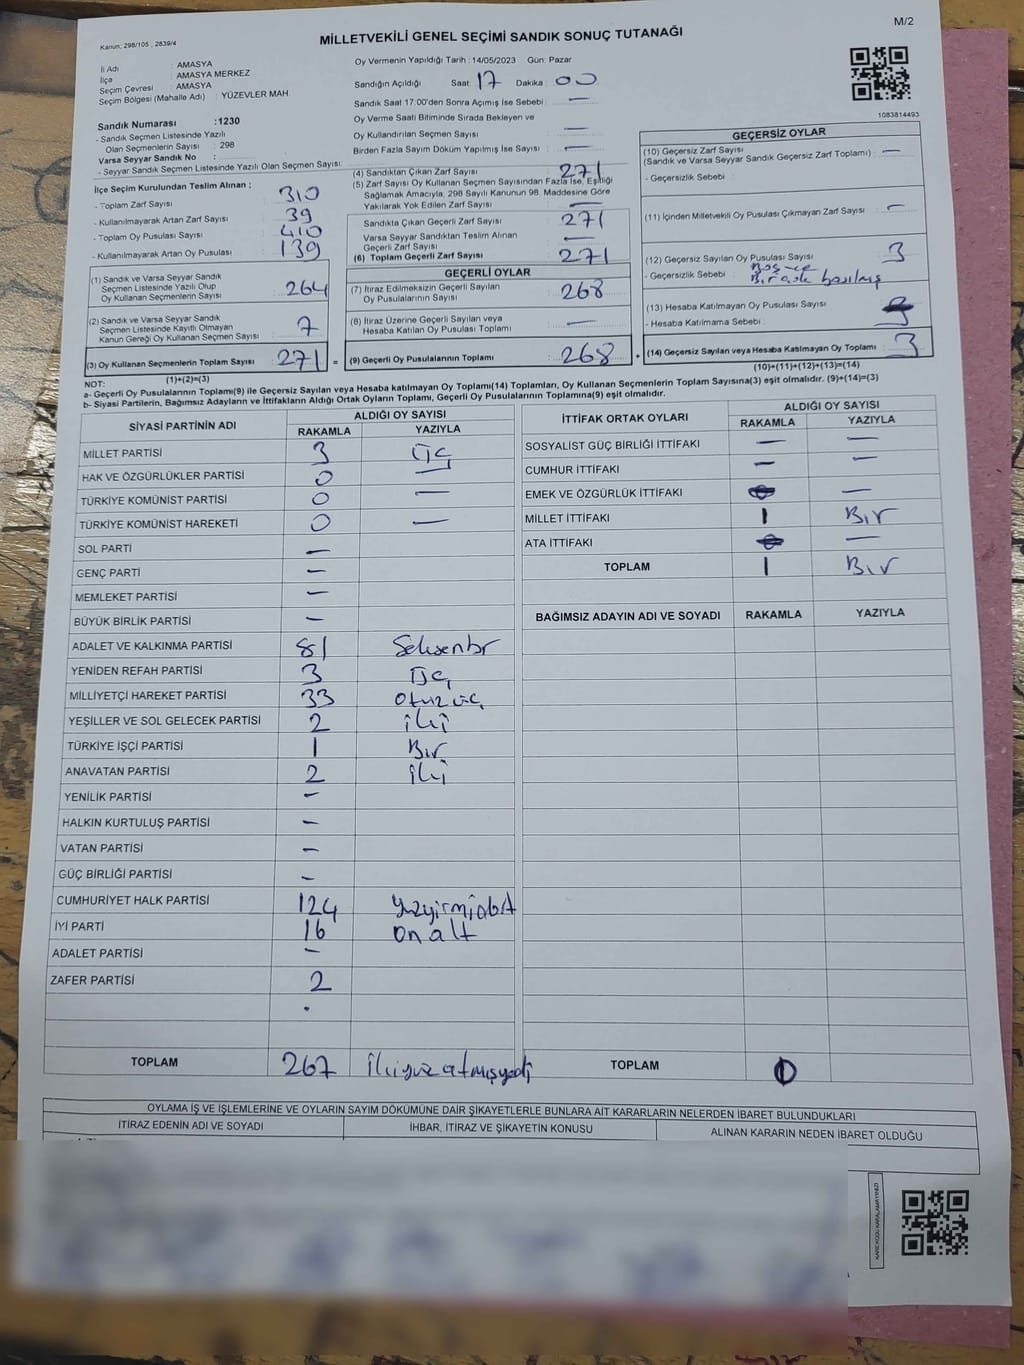 M/2
Kanun; 298/105 , 2839/4
MİLLETVEKİLİ GENEL SEÇİMİ SANDIK SONUÇ TUTANAĞI
İl Adı : AMASYA
İlçe : AMASYA MERKEZ
Seçim Çevresi : AMASYA
Seçim Bölgesi (Mahalle Adı) : YÜZEVLER MAH
Sandık Numarası :1230
- Sandık Seçmen Listesinde Yazılı
Olan Seçmenlerin Sayısı : 298
Varsa Seyyar Sandık No :
- Seyyar Sandık Seçmen Listesinde Yazılı Olan Seçmen Sayısı:
İlçe Seçim Kurulundan Teslim Alınan ;
- Toplam Zarf Sayısı : 310
- Kullanılmayarak Artan Zarf Sayısı : 39
- Toplam Oy Pusulası Sayısı : 410
- Kullanılmayarak Artan Oy Pusulası : 139
(1) Sandık ve Varsa Seyyar Sandık
Seçmen Listesinde Yazılı Olup
Oy Kullanan Seçmenlerin Sayısı : 264
(2) Sandık ve Varsa Seyyar Sandık
Seçmen Listesinde Kayıtlı Olmayan
Kanun Gereği Oy Kullanan Seçmen Sayısı : 7
(3) Oy Kullanan Seçmenlerin Toplam Sayısı : 271 =
(1)+(2)=(3)
Oy Vermenin Yapıldığı Tarih : 14/05/2023 Gün: Pazar
Sandığın Açıldığı Saat: 17 Dakika : 00
Sandık Saat 17:00'den Sonra Açımış İse Sebebi : —
Oy Verme Saati Bitiminde Sırada Bekleyen ve
Oy Kullandırılan Seçmen Sayısı : —
Birden Fazla Sayım Döküm Yapılmış İse Sayısı : —
(4) Sandıktan Çıkan Zarf Sayısı : 271
(5) Zarf Sayısı Oy Kullanan Seçmen Sayısından Fazla İse, Eşitliği
Sağlamak Amacıyla, 298 Sayılı Kanunun 98. Maddesine Göre
Yakılarak Yok Edilen Zarf Sayısı : —
Sandıkta Çıkan Geçerli Zarf Sayısı : 271
Varsa Seyyar Sandıktan Teslim Alınan
Geçerli Zarf Sayısı : —
(6) Toplam Geçerli Zarf Sayısı : 271
GEÇERLİ OYLAR
(7) İtiraz Edilmeksizin Geçerli Sayılan
Oy Pusulalarının Sayısı : 268
(8) İtiraz Üzerine Geçerli Sayılan veya
Hesaba Katılan Oy Pusulası Toplamı : —
(9) Geçerli Oy Pusulalarının Toplamı : 268 +
1083814493
GEÇERSİZ OYLAR
(10) Geçersiz Zarf Sayısı : —
(Sandık ve Varsa Seyyar Sandık Geçersiz Zarf Toplamı)
- Geçersizlik Sebebi :
(11) İçinden Milletvekili Oy Pusulası Çıkmayan Zarf Sayısı : —
(12) Geçersiz Sayılan Oy Pusulası Sayısı : 3
- Geçersizlik Sebebi : basılmış
(13) Hesaba Katılmayan Oy Pusulası Sayısı :
- Hesaba Katılmama Sebebi :
(14) Geçersiz Sayılan veya Hesaba Katılmayan Oy Toplamı : 3
(10)+(11)+(12)+(13)=(14)
NOT:
a- Geçerli Oy Pusulalarının Toplamı(9) ile Geçersiz Sayılan veya Hesaba katılmayan Oy Toplamı(14) Toplamları, Oy Kullanan Seçmenlerin Toplam Sayısına(3) eşit olmalıdır. (9)+(14)=(3)
b- Siyasi Partilerin, Bağımsız Adayların ve İttifakların Aldığı Ortak Oyların Toplamı, Geçerli Oy Pusulalarının Toplamına(9) eşit olmalıdır.
SİYASİ PARTİNİN ADI ALDIĞI OY SAYISI
RAKAMLA YAZIYLA
MİLLET PARTİSİ 3 Üç
HAK VE ÖZGÜRLÜKLER PARTİSİ 0 —
TÜRKİYE KOMÜNİST PARTİSİ 0 —
TÜRKİYE KOMÜNİST HAREKETİ 0 —
SOL PARTİ —
GENÇ PARTİ —
MEMLEKET PARTİSİ —
BÜYÜK BİRLİK PARTİSİ —
ADALET VE KALKINMA PARTİSİ 81 Seksenbr
YENİDEN REFAH PARTİSİ 3 Üç
MİLLİYETÇİ HAREKET PARTİSİ 33 otuzüç
YEŞİLLER VE SOL GELECEK PARTİSİ 2 iki
TÜRKİYE İŞÇİ PARTİSİ 1 Bir
ANAVATAN PARTİSİ 2 iki
YENİLİK PARTİSİ —
HALKIN KURTULUŞ PARTİSİ —
VATAN PARTİSİ —
GÜÇ BİRLİĞİ PARTİSİ —
CUMHURİYET HALK PARTİSİ 124
İYİ PARTİ 16 on altı
ADALET PARTİSİ —
ZAFER PARTİSİ 2
TOPLAM 267 ikiyüzatmışyedi
İTTİFAK ORTAK OYLARI ALDIĞI OY SAYISI
RAKAMLA YAZIYLA
SOSYALİST GÜÇ BİRLİĞİ İTTİFAKI — —
CUMHUR İTTİFAKI — —
EMEK VE ÖZGÜRLÜK İTTİFAKI —
MİLLET İTTİFAKI 1 Bir
ATA İTTİFAKI —
TOPLAM 1 Bir
BAĞIMSIZ ADAYIN ADI VE SOYADI RAKAMLA YAZIYLA
TOPLAM
OYLAMA İŞ VE İŞLEMLERİNE VE OYLARIN SAYIM DÖKÜMÜNE DAİR ŞİKAYETLERLE BUNLARA AİT KARARLARIN NELERDEN İBARET BULUNDUKLARI
İTİRAZ EDENİN ADI VE SOYADI İHBAR, İTİRAZ VE ŞİKAYETİN KONUSU ALINAN KARARIN NEDEN İBARET OLDUĞU
KARE KODU KARALAMAYINIZ!